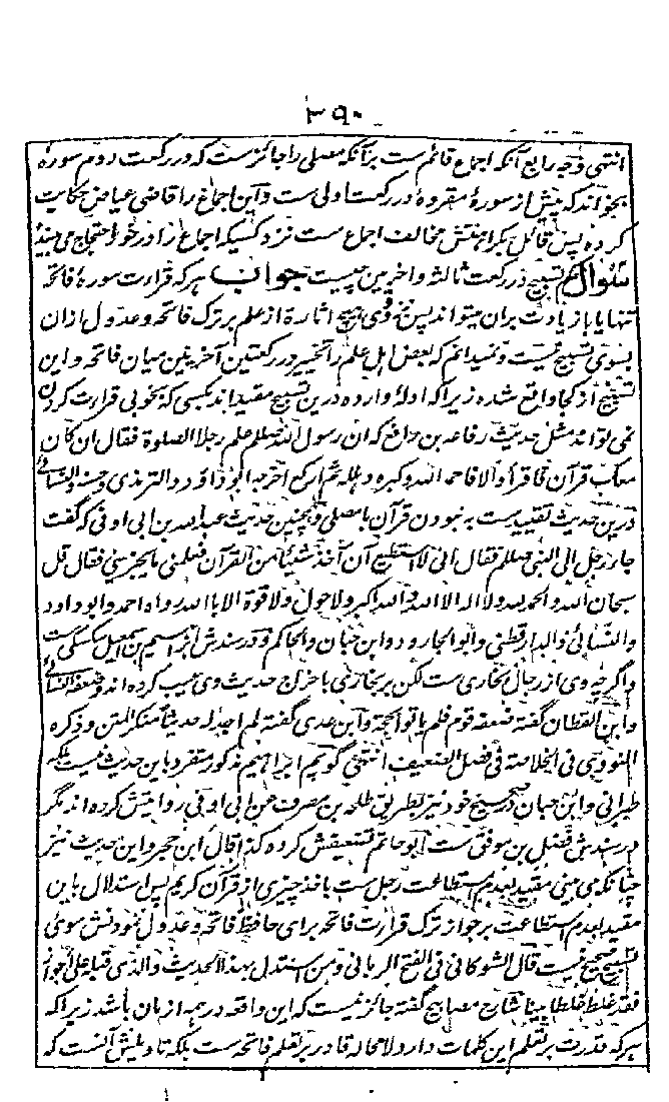 ۳۹۰
انتهی وجه رابع آنکه اجماع قائم ست برآنکه مصلی را جائز ست که در رکعت دوم سورهٔ
بخواند که پیش از سورهٔ مقروهٔ در رکعت اولی ست و این اجماع را قاضی عیاض حکایت
کرده پس قائل بکراهتش مخالف اجماع ست نزد کسیکه اجماع را در خور احتجاج می بیند
سئوال حکم تسبیح در رکعت ثالثه و اخریین چیست جواب هر که قراءت سورهٔ فاتحه
تنها یا با زیادت بران میتواند پس نزد وی هیچ اثارة از علم بر ترک فاتحه و عدول ازان
بسوی تسبیح نیست و نمیدانم که بعض اهل علم را تخییر در رکعتین آخریین میان فاتحه و این
تسبیح از کجا واقع شده زیرا که ادلهٔ وارده درین تسبیح مقید اند بکسی که بخوبی قراءت کردن
نمی تواند مثل حدیث رفاعه بن رافع که ان رسول الله صلعم علم رجلا الصلوة فقال ان کان
معک قرآن فاقرأ والا فاحمد الله وکبره وهلله ثم ارکع اخرجه ابوداؤد والترمذی وحسنه والنسائی
درین حدیث تقیید ست به نبودن قرآن با مصلی و همچنین حدیث عبدالله بن ابی اوفی که گفت
جاء رجل الی النبی صلعم فقال انی لا استطیع ان آخذ شیئا من القرآن فعلمنی ما یجزینی فقال قل
سبحان الله والحمد لله ولا اله الا الله والله اکبر ولا حول ولا قوة الا بالله رواه احمد وابو داود
والنسائی والدارقطنی وابو الجارود وابن حبان والحاکم و در سندش ابراهیم بن اسمعیل سکسکی ست
واگرچه وی از رجال بخاری ست لکن بر بخاری باخراج حدیث وی عیب کرده اند وضعفه النسائی
وابن القطان گفته ضعفه قوم فلم یاتوا بحجة وابن عدی گفته لم اجد له حدیثا منکر المتن وذکره
النووی فی الخلاصة فی فصل الضعیف انتهی گویم ابراهیم مذکور متفرد باین حدیث نیست بلکه
طبرانی وابن حبان در صحیح خود نیز بطریق طلحه بن مصرف عن ابی اوفی روایتش کرده اند مگر
در سندش فضل بن موفق ست ابو حاتم تضعیفش کرده کذا قال ابن حجر و این حدیث نیز
چنانکه می بینی مقید بعدم استطاعت رجل ست باخذ چیزی از قرآن کریم پس استدلال باین
مقید بعدم استطاعت بر جواز ترک قراءت فاتحه برای حافظ فاتحه و عدول نمودنش سوی
تسبیح صحیح نیست قال الشوکانی فی الفتح الربانی ومن استدل بهذا الحدیث والذی قبله علی الجواز
فقد غلط غلطا بینا شارح مصابیح گفته جائز نیست که این واقعه در همه ازمان باشد زیرا که
هر که قدرت بر تعلم این کلمات دارد لا محاله قادر بر تعلم فاتحه ست بلکه تاویلش آنست که